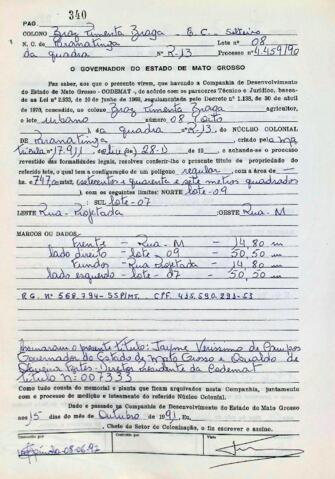 340
PAG.
COLONO Braz Pimenta Braga E.C. Solteiro
N. C. de Paranatinga Lote nº 08
da quadra Nº R-13 Processo nº 4.459/90
O GOVERNADOR DO ESTADO DE MATO GROSSO
Faz saber, aos que o presente virem, que havendo a Companhia de Desenvolvimento
do Estado de Mato Grosso - CODEMAT -, de acôrdo com os pareceres Técnico e Jurídico, baseados
na Lei nº 2.833, de 10 de junho de 1968, regulamentada pelo Decreto nº 1.138, de 30 de abril
de 1970, concordado com Braz Pimenta Braga agricultor,
o lote urbano nº 08 (oito
) da quadra R-13. DO NÚCLEO COLONIAL
DE Paranatinga criado pela ma
trícula nº 17.911 - 28-D e achando-se o processo
revestido das formalidades legais, resolveu conferir-lhe o presente título de propriedade do
referido lote, o qual tem a configuração de um polígono regular com a área de —
ha 747,00 mts2, setecentos e quarenta e sete metros quadrados
e está situado nos seguintes limites: NORTE lote-09
SUL lote-07
LESTE Rua-Projetada OESTE Rua-M
MARCOS OU DADOS
Frente - Rua-M - 14,80 m
lado direito - lote-09 - 50,50 m
Fundos - Rua Projetada - 14,80 m
lado esquerdo - lote-07 - 50,50 m
R.G. Nº 568.794-SSP/MT. CPF. 415.590.291-53
Assinaram o presente título: Jayme Verissimo de Campos
Governador do Estado de Mato Grosso e Osvaldo de
Oliveira Fortes - Diretor Presidente da Codemat
título Nº 007333
Como tudo consta do memorial e planta que ficam arquivados nesta Companhia, juntamente
com o processo de medição e loteamento do referido Núcleo Colonial.
Dado e passado na Companhia de Desenvolvimento do Estado de Mato Grosso
aos 15 dias do mês de Outubro de 1991. Eu,
, Chefe do Setor de Colonização, o fiz escrever e assino.
Conferido por
Visto
08-06-92